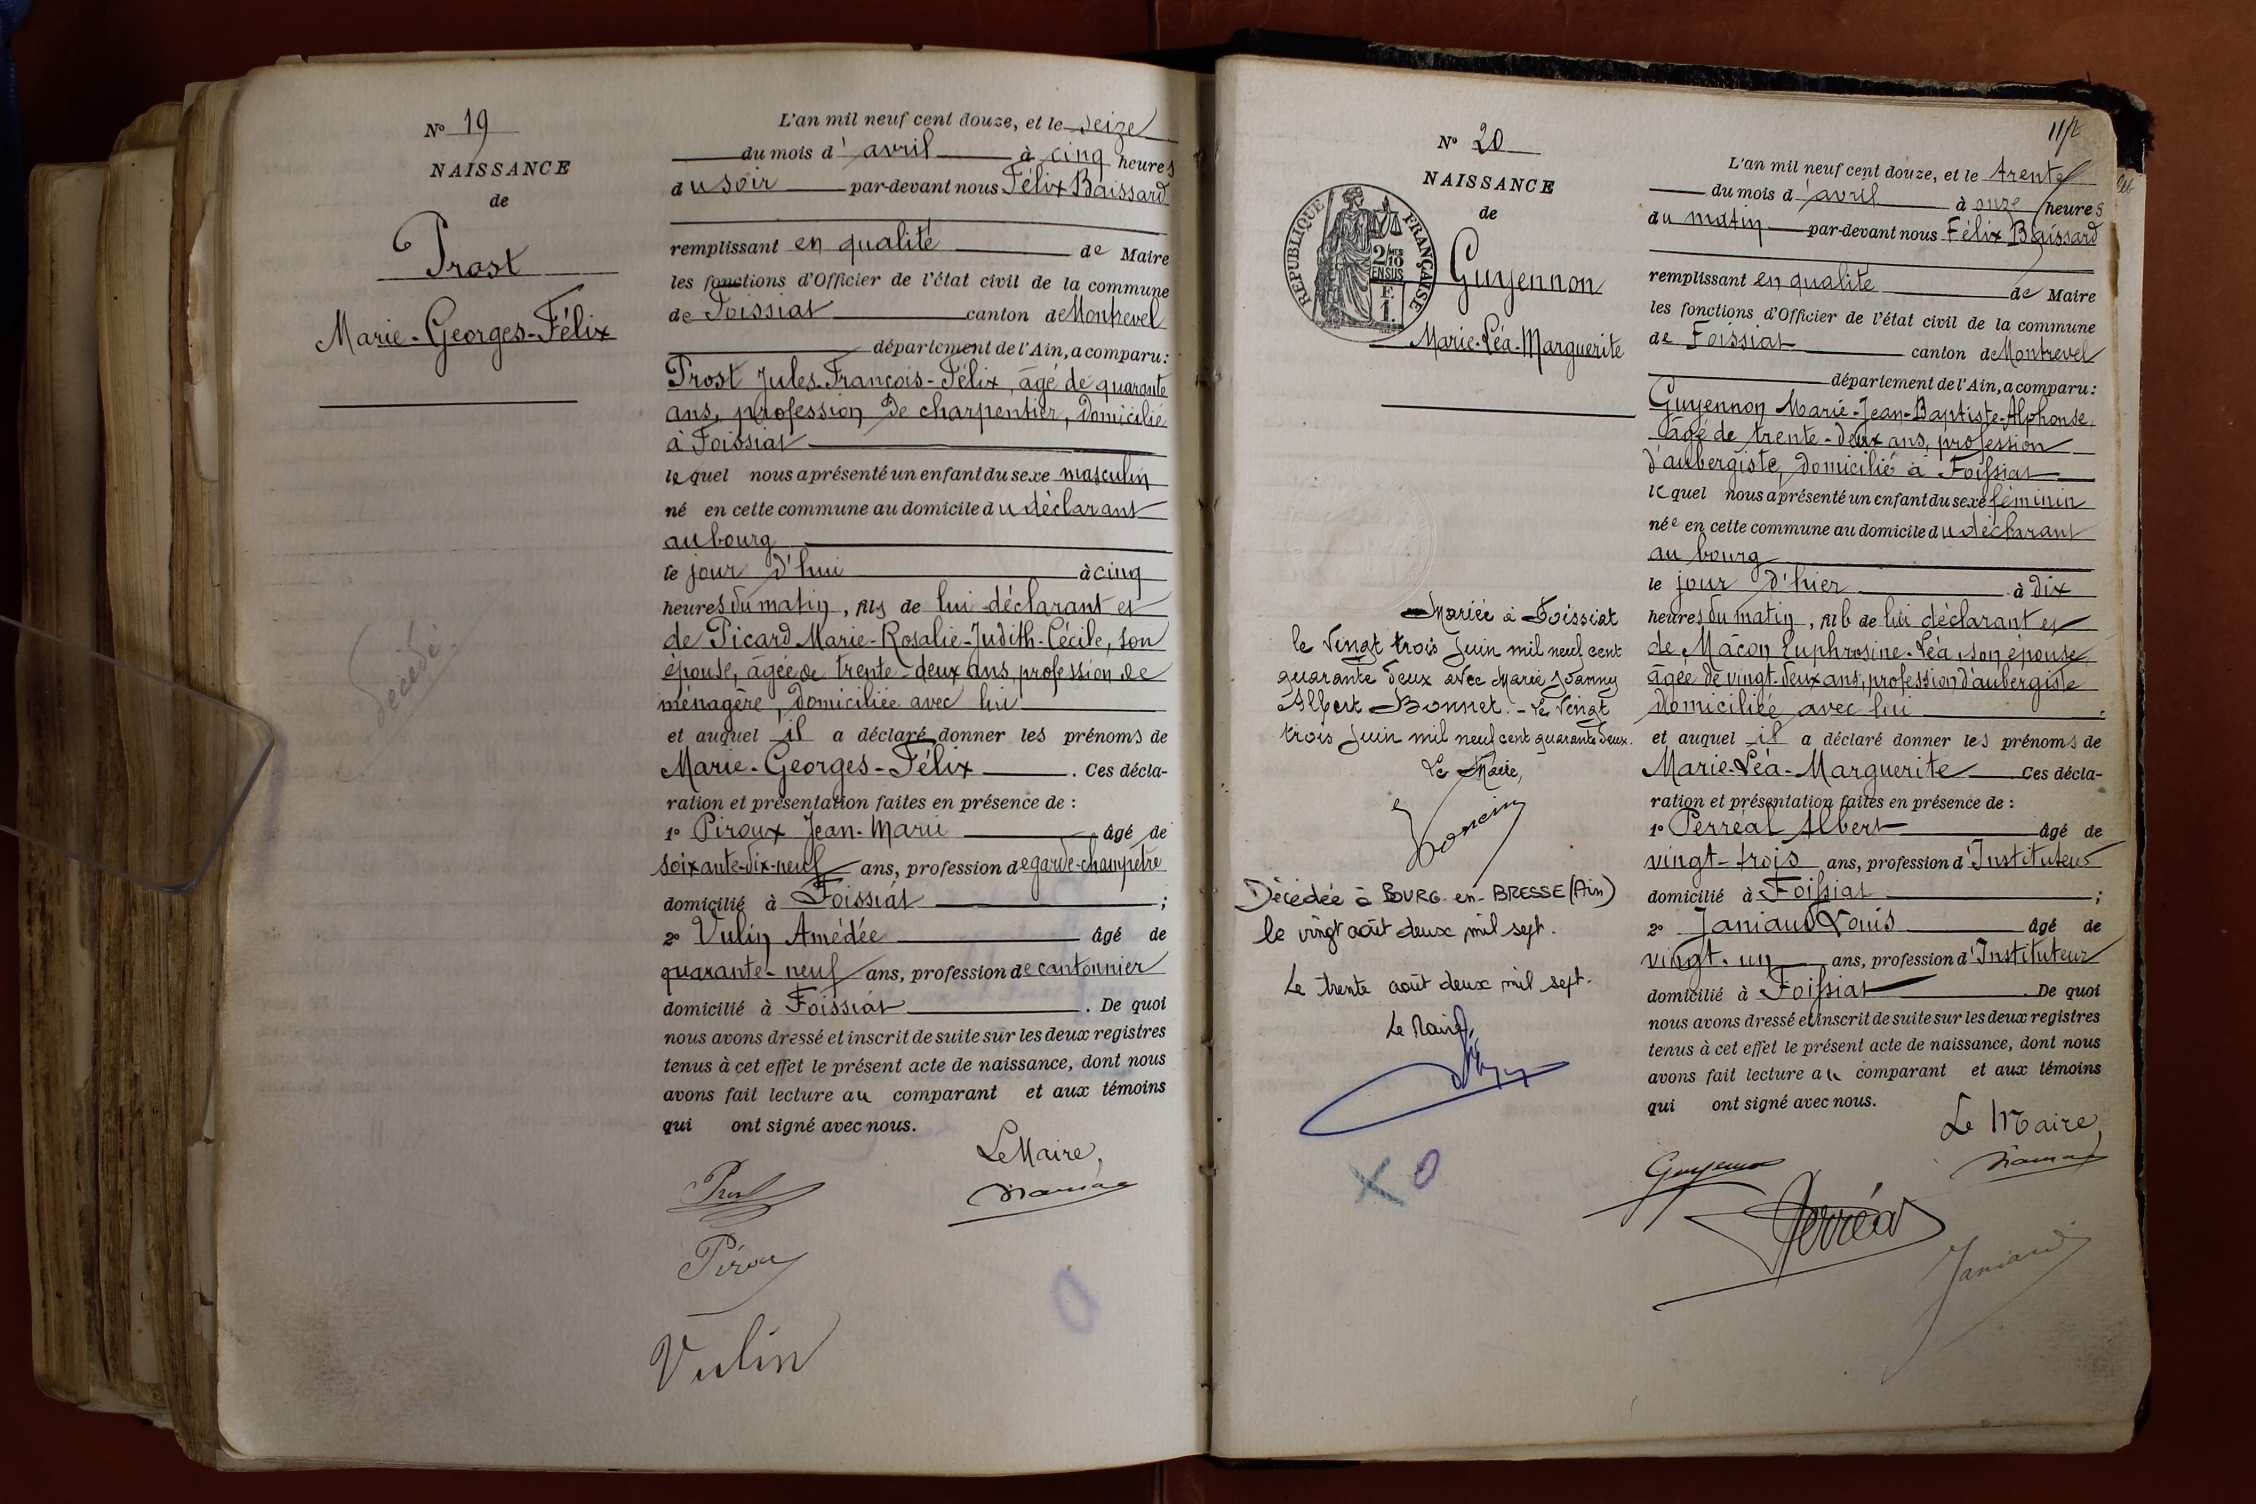 N° 19
NAISSANCE
de
Prost
Marie-Georges-Félix
décédé
L'an mil neuf cent douze, et le seize
du mois d'avril à cinq heures
du soir par-devant nous Félix Baissard
remplissant en qualité de Maire
les fonctions d'Officier de l'état civil de la commune
de Foissiat canton de Montrevel
département de l'Ain, a comparu:
Prost Jules-François-Félix, âgé de quarante
ans, profession de charpentier, domicilié
à Foissiat
lequel nous a présenté un enfant du sexe masculin
né en cette commune au domicile du déclarant
au bourg
le jour d'hui à cinq
heures du matin, fils de lui déclarant et
de Picard Marie-Rosalie-Judith-Cécile, son
épouse, âgée de trente-deux ans, profession de
ménagère, domiciliée avec lui
et auquel il a déclaré donner les prénoms de
Marie-Georges-Félix. Ces décla-
ration et présentation faites en présence de :
1° Piroux Jean-Marie âgé de
soixante-dix-neuf ans, profession de garde-champêtre
domicilié à Foissiat ;
2° Vulin Amédée âgé de
quarante-neuf ans, profession de cantonnier
domicilié à Foissiat. De quoi
nous avons dressé et inscrit de suite sur les deux registres
tenus à cet effet le présent acte de naissance, dont nous
avons fait lecture au comparant et aux témoins
qui ont signé avec nous.
Le Maire,
Prost
Vulin
N° 20
NAISSANCE
de
RÉPUBLIQUE FRANÇAISE
2/10
EN SUS
F.
1.
Guyennon
Marie-Léa-Marguerite
Mariée à Foissiat
le vingt trois Juin mil neuf cent
quarante deux avec Marie Joanny
Albert Bonnet. - Le vingt
trois Juin mil neuf cent quarante deux.
Le Maire,
Décédée à BOURG-en-BRESSE (Ain)
le vingt août deux mil sept.
Le trente août deux mil sept.
Le Maire,
X O
L'an mil neuf cent douze, et le trente
du mois d'avril à onze heures
du matin par-devant nous Félix Baissard
remplissant en qualité de Maire
les fonctions d'Officier de l'état civil de la commune
de Foissiat canton de Montrevel
département de l'Ain, a comparu:
Guyennon Marie-Jean-Baptiste-Alphonse,
âgé de trente-deux ans, profession
d'aubergiste, domicilié à Foissiat
lequel nous a présenté un enfant du sexe féminin
née en cette commune au domicile du déclarant
au bourg
le jour d'hier à dix
heures du matin, fille de lui déclarant et
de Mâcon Euphrosine-Léa, son épouse,
âgée de vingt-deux ans, profession d'aubergiste
domiciliée avec lui
et auquel il a déclaré donner les prénoms de
Marie-Léa-Marguerite Ces décla-
ration et présentation faites en présence de :
1° Perréal Albert âgé de
vingt-trois ans, profession d'Instituteur
domicilié à Foissiat ;
2° Janiaud Louis âgé de
vingt-un ans, profession d'Instituteur
domicilié à Foissiat. De quoi
nous avons dressé et inscrit de suite sur les deux registres
tenus à cet effet le présent acte de naissance, dont nous
avons fait lecture au comparant et aux témoins
qui ont signé avec nous.
Le Maire,
Guyennon
Perréal
Janiaud